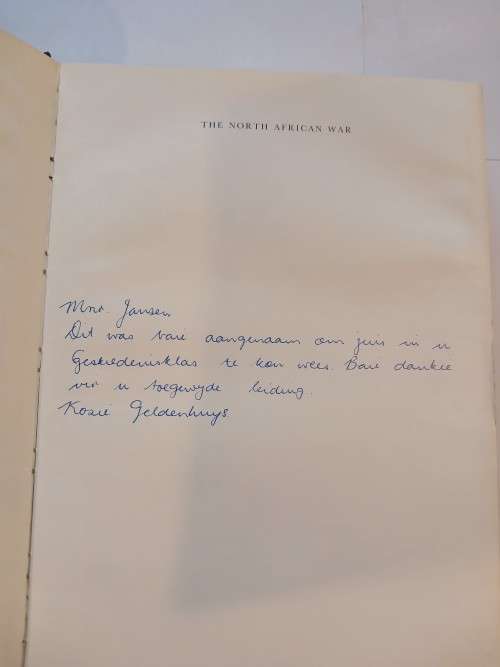 THE NORTH AFRICAN WAR
Mnr. Jansen
Dit was baie aangenaam om juis in u
Geskiedenisklas te kon wees. Baie dankie
vir u toegewyde leiding.
Kosie Geldenhuys